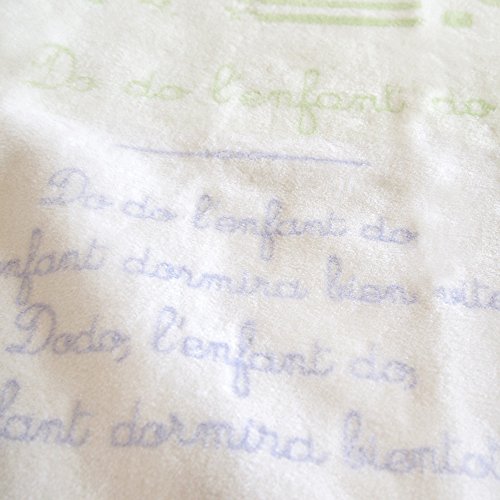 Do do l'enfant do
Do do l'enfant do
enfant dormira bien vite
Dodo, l'enfant do,
fant dormira bientot